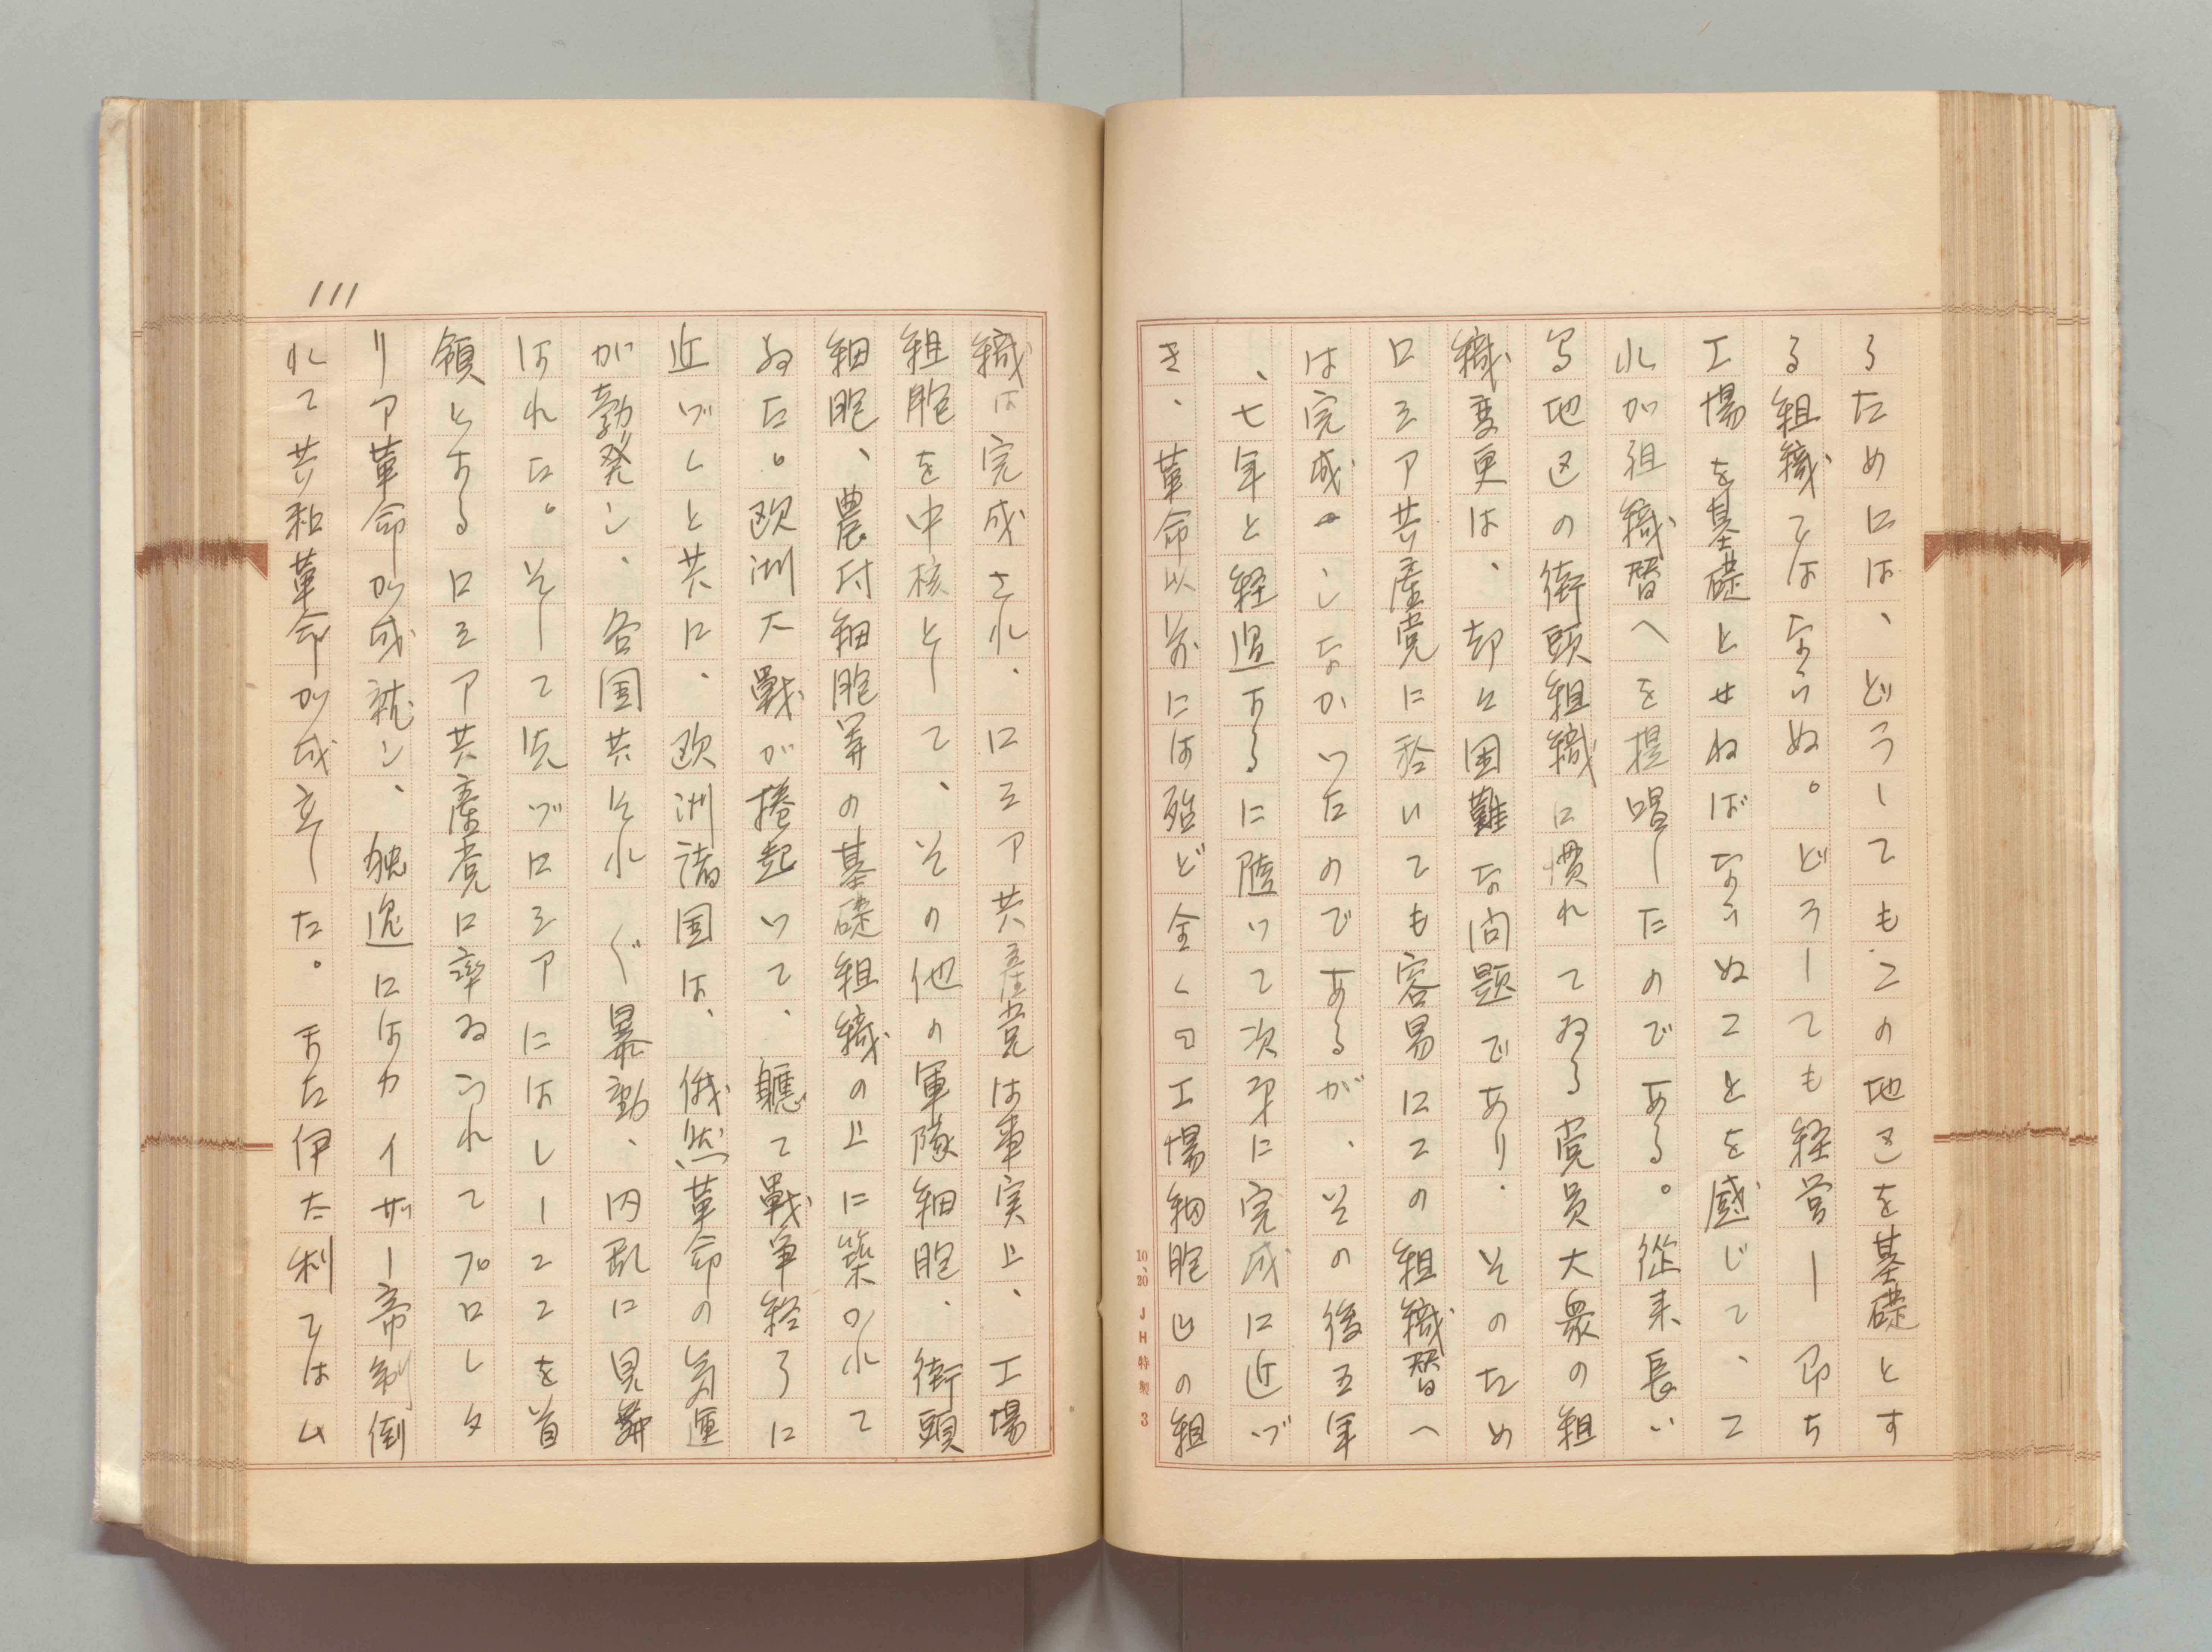 るためには、どうしてもこの地区を基礎とす
る組織ではならぬ。どうしても経営――即ち
工場を基礎とせねばならぬことを感じて、こ
れが組織替へを提唱したのである。従来長い
間地区の街頭組織に慣れてゐる党員大衆の組
織変更は、却々困難な問題であり、そのため
ロシア共産党に於いても容易にこの組織替へ
は完成しなかつたのであるが、その後五年
、七年と経過するに随つて次第に完成に近づ
き、革命以前には殆ど全く『工場細胞』の組
10、20 JH特製 3
111
織は完成され、ロシア共産党は事実上、工場
細胞を中核として、その他の軍隊細胞、街頭
細胞、農村細胞等の基礎組織の上に築かれて
ゐた。欧洲大戦が捲起つて、軈て戦争終了に
近づくと共に、欧洲諸国は、俄然革命の気運
が勃発し、各国共それ〴〵暴動、内乱に見舞
はれた。そして先づロシアにはレーニンを首
領とするロシア共産党に率ゐられてプロレタ
リア革命が成就し、独逸にはカイザー帝制倒
れて共和革命が成立した。また伊太利ではム